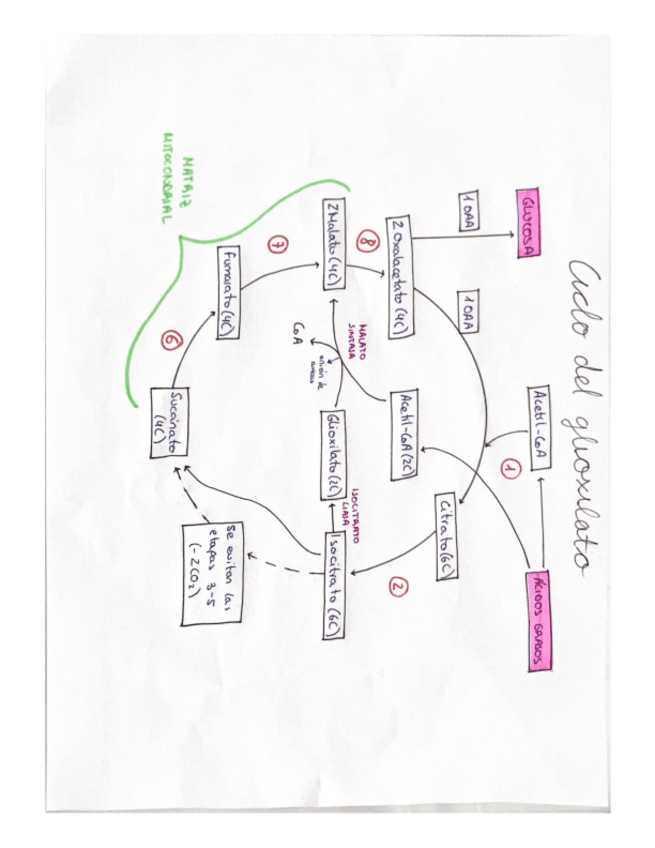 Ciclo del glioxilato
GLUCOSA
Acetil-CoA
ÁCIDOS GRASOS
1 OAA
1 OAA
1
Citrato(6C)
2 Oxalacetato (4C)
Acetil-CoA(2C)
2
8
MALATO
SINTASA
ISOCITRATO
LIASA
2 Malato(4C)
Glioxilato(2C)
Isocitrato (6C)
unión de
CoA
7
Fumarato(4C)
Se evitan las
etapas 3-5
(-2CO₂)
6
Succinato
(4C)
MATRIZ
MITOCONDRIAL